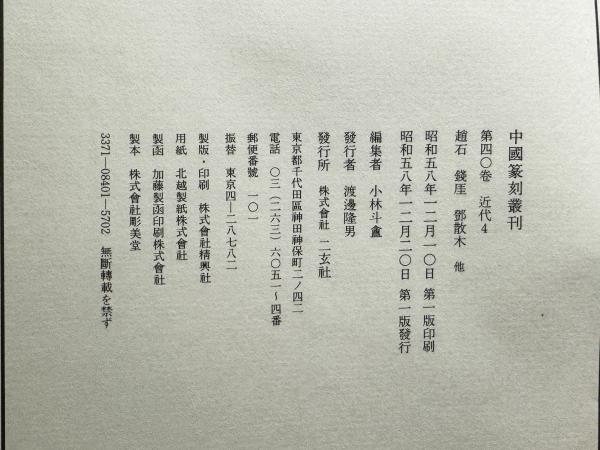 中國篆刻叢刊
第四〇卷　近代4
趙石　錢厓　鄧散木　他
昭和五八年一二月一〇日　第一版印刷
昭和五八年一二月二〇日　第一版發行
編集者　小林斗盦
發行者　渡邊隆男
發行所　株式會社　二玄社
東京都千代田區神田神保町二ノ四二
電話　〇三(二六三)六〇五一〜四番
郵便番號　一〇一
振替　東京四―二八七八二
製版・印刷　株式會社精興社
用紙　北越製紙株式會社
製函　加藤製函印刷株式會社
製本　株式會社彫美堂
3371―08401―5702　無斷轉載を禁ず